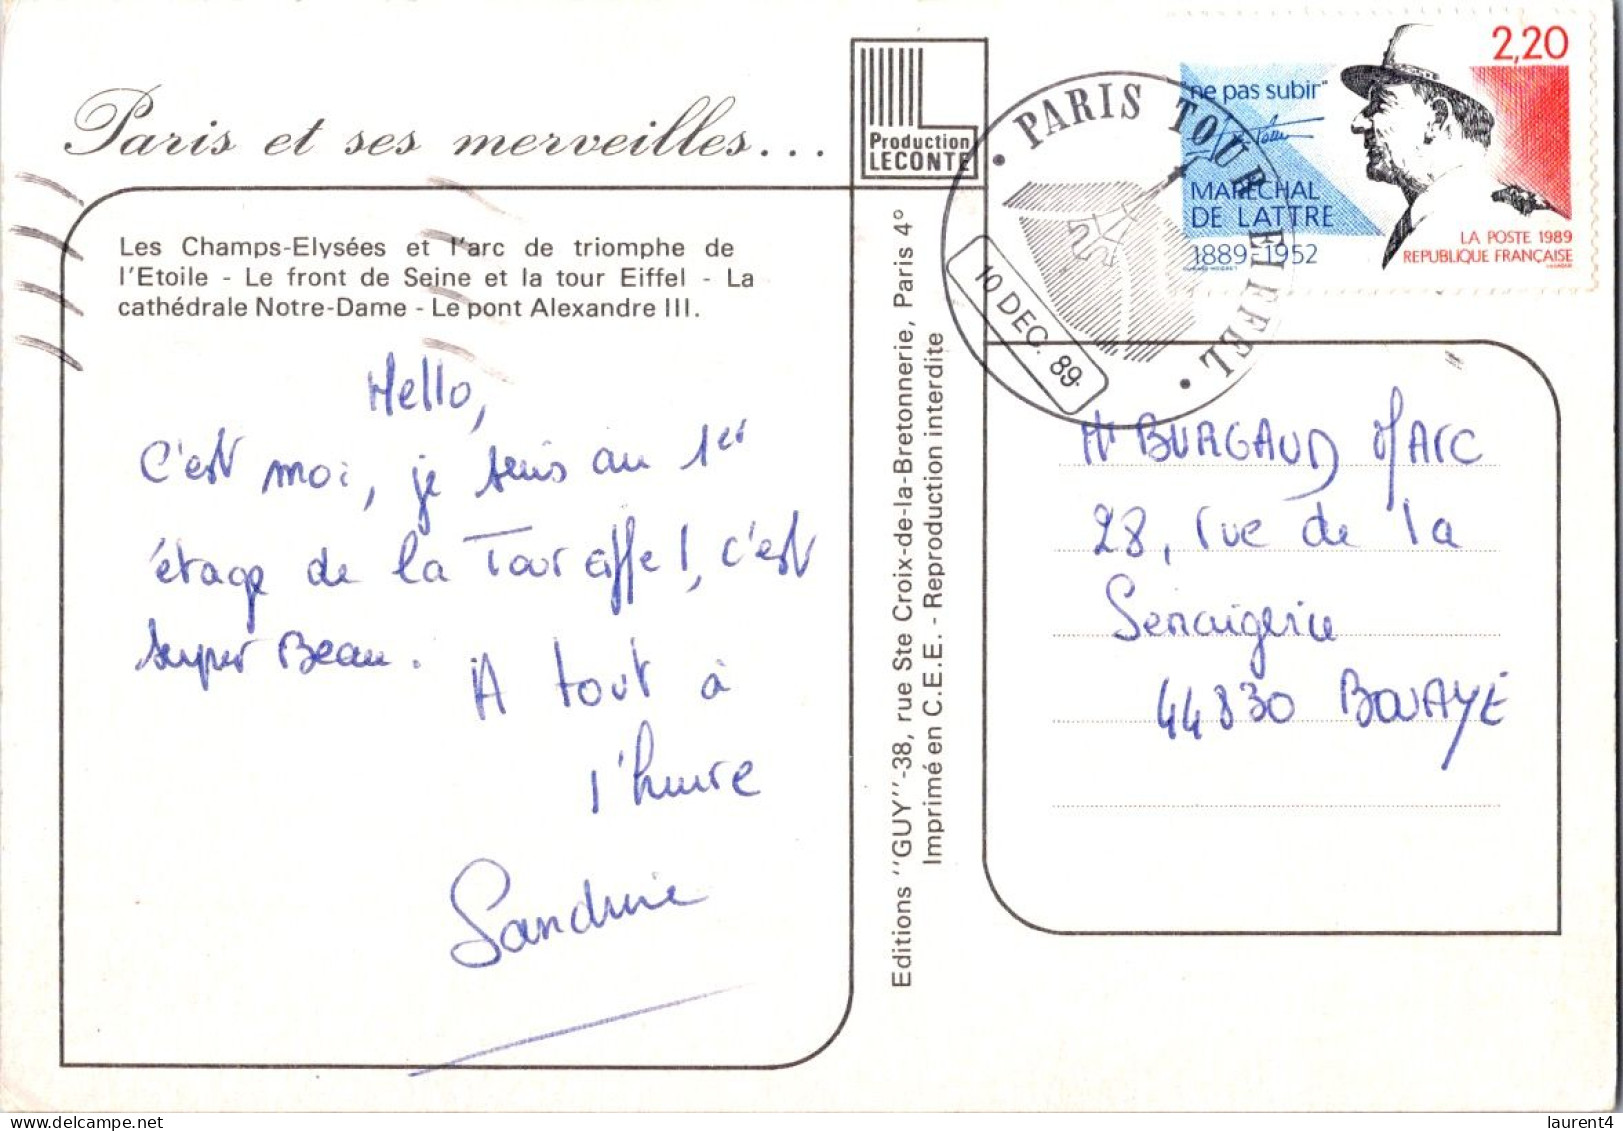 Paris et ses merveilles...
Production
LECONTE
Les Champs-Elysées et l'arc de triomphe de
l'Etoile - Le front de Seine et la tour Eiffel - La
cathédrale Notre-Dame - Le pont Alexandre III.
Hello,
C'est moi, je suis au 1er
étage de la Tour eiffel, c'est
super Beau.
A tout à
l'heure
Sandrine
Editions "GUY"-38, rue Ste Croix-de-la-Bretonnerie, Paris 4°
Imprimé en C.E.E. - Reproduction interdite
• PARIS TOUR EIFFEL •
10 DEC. 89
2,20
"ne pas subir"
MARÉCHAL
DE LATTRE
1889-1952
LA POSTE 1989
REPUBLIQUE FRANÇAISE
Mr BURGAUD MARC
28, rue de la
Senaigerie
44830 BOUAYE
laurent4